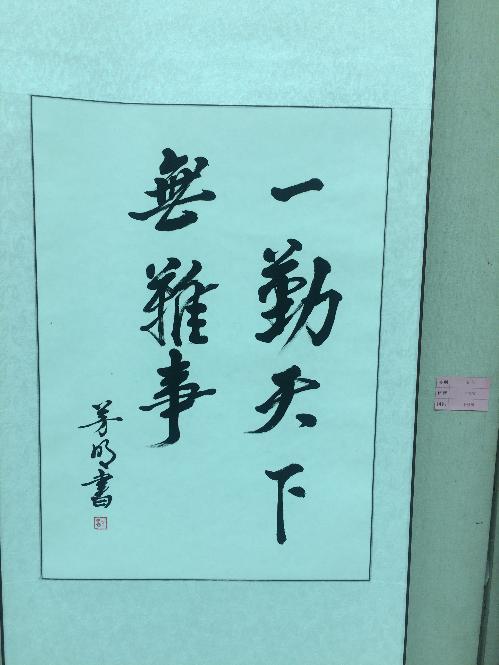 一勤天下
無難事
芳明書